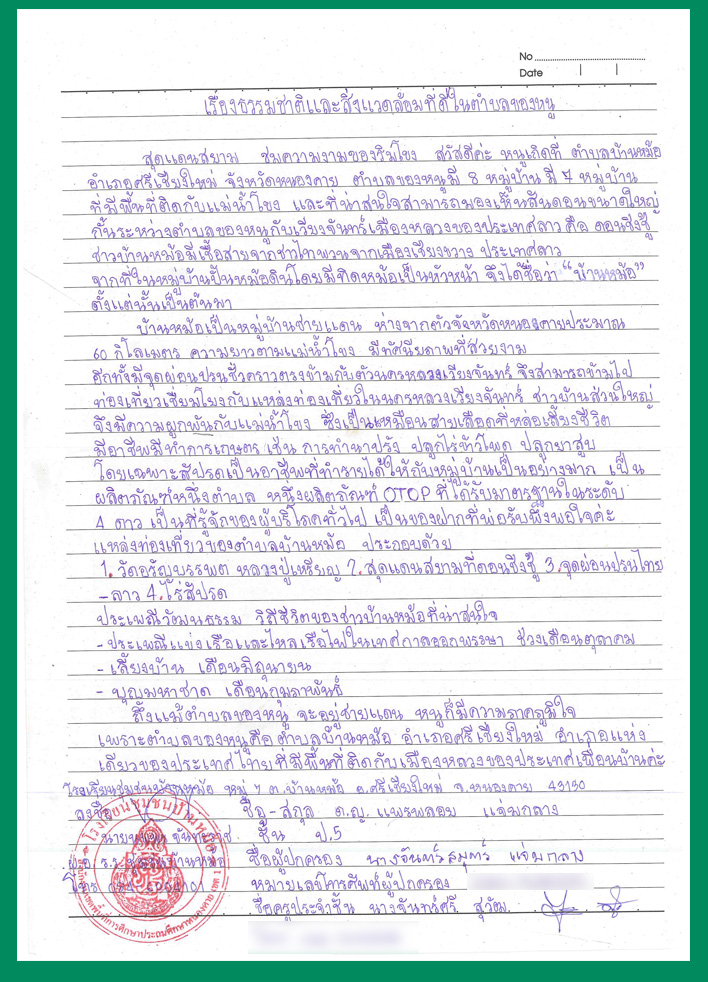 No
Date
เรื่องธรรมชาติและสิ่งแวดล้อมที่ดีในตำบลของหนู
สุดแดนสยาม ชมความงามของริมโขง สวัสดีค่ะ หนูเกิดที่ ตำบลบ้านหม้อ
อำเภอศรีเชียงใหม่ จังหวัดหนองคาย ตำบลของหนูมี 8 หมู่บ้าน มี 7 หมู่บ้าน
ที่มีพื้นที่ติดกับแม่น้ำโขง และที่น่าสนใจสามารถมองเห็นสันดอนขนาดใหญ่
กั้นระหว่างตำบลของหนูกับเวียงจันทร์เมืองหลวงของประเทศลาว คือ ดอนชิงชู้
ชาวบ้านหม้อมีเชื้อสายจากชาวไทพวนจากเมืองเชียงขวาง ประเทศลาว
จากที่ในหมู่บ้านปั้นหม้อดินโดยมีทิดหม้อเป็นหัวหน้า จึงได้ชื่อว่า "บ้านหม้อ"
ตั้งแต่นั้นเป็นต้นมา
บ้านหม้อเป็นหมู่บ้านชายแดน ห่างจากตัวจังหวัดหนองคายประมาณ
60 กิโลเมตร ความยาวตามแม่น้ำโขง มีทัศนียภาพที่สวยงาม
อีกทั้งมีจุดผ่อนปรนชั่วคราวตรงข้ามกับตัวนครหลวงเวียงจันทร์ จึงสามารถข้ามไป
ท่องเที่ยวเชื่อมโยงกับแหล่งท่องเที่ยวในนครหลวงเวียงจันทร์ ชาวบ้านส่วนใหญ่
จึงมีความผูกพันกับแม่น้ำโขง ซึ่งเป็นเหมือนสายเลือดที่หล่อเลี้ยงชีวิต
มีอาชีพมีทำการเกษตร เช่น การทำนาปรัง ปลูกไร่ข้าวโพด ปลูกยาสูบ
โดยเฉพาะสัปรดเป็นอาชีพที่ทำรายได้ให้กับหมู่บ้านเป็นอย่างมาก เป็น
ผลิตภัณฑ์หนึ่งตำบล หนึ่งผลิตภัณฑ์ OTOP ที่ได้รับมาตรฐานในระดับ
4 ดาว เป็นที่รู้จักของผู้บริโภคทั่วไป เป็นของฝากที่พ่อรับพึงพอใจค่ะ
แหล่งท่องเที่ยวของตำบลบ้านหม้อ ประกอบด้วย
1. วัดอรัญบรรพต หลวงปู่เหรียญ 2. สุดแดนสยามที่ดอนชิงชู้ 3. จุดผ่อนปรนไทย
- ลาว 4. ไร่สัปรด
ประเพณีวัฒนธรรม วิถีชีวิตของชาวบ้านหม้อที่น่าสนใจ
- ประเพณีแข่งเรือและไหลเรือไฟในเทศกาลออกพรรษา ช่วงเดือนตุลาคม
- เลี้ยงบ้าน เดือนมิถุนายน
- บุญมหาชาด เดือนกุมภาพันธ์
ถึงแม้ตำบลของหนู จะอยู่ชายแดน หนูก็มีความภาคภูมิใจ
เพราะตำบลของหนูคือตำบลบ้านหม้อ อำเภอศรีเชียงใหม่ อำเภอแห่ง
เดียวของประเทศไทย ที่มีพื้นที่ติดกับเมืองหลวงของประเทศเพื่อนบ้านค่ะ
โรงเรียนชุมชนบ้านหม้อ หมู่ 7 ต.บ้านหม้อ อ.ศรีเชียงใหม่ จ.หนองคาย 43130
ลงชื่อ ชื่อ - สกุล ด.ญ. แพรพลอย แจ่มกลาง
ชั้น ป.5
ผ.อ. ร.ร. ชุมชนบ้านหม้อ ชื่อผู้ปกครอง นางจันทร์สมุทร์ แจ่มกลาง
โทร หมายเลขโทรศัพท์ผู้ปกครอง
ชื่อครูประจำชั้น นางจันทร์ศรี สุวัฒ.